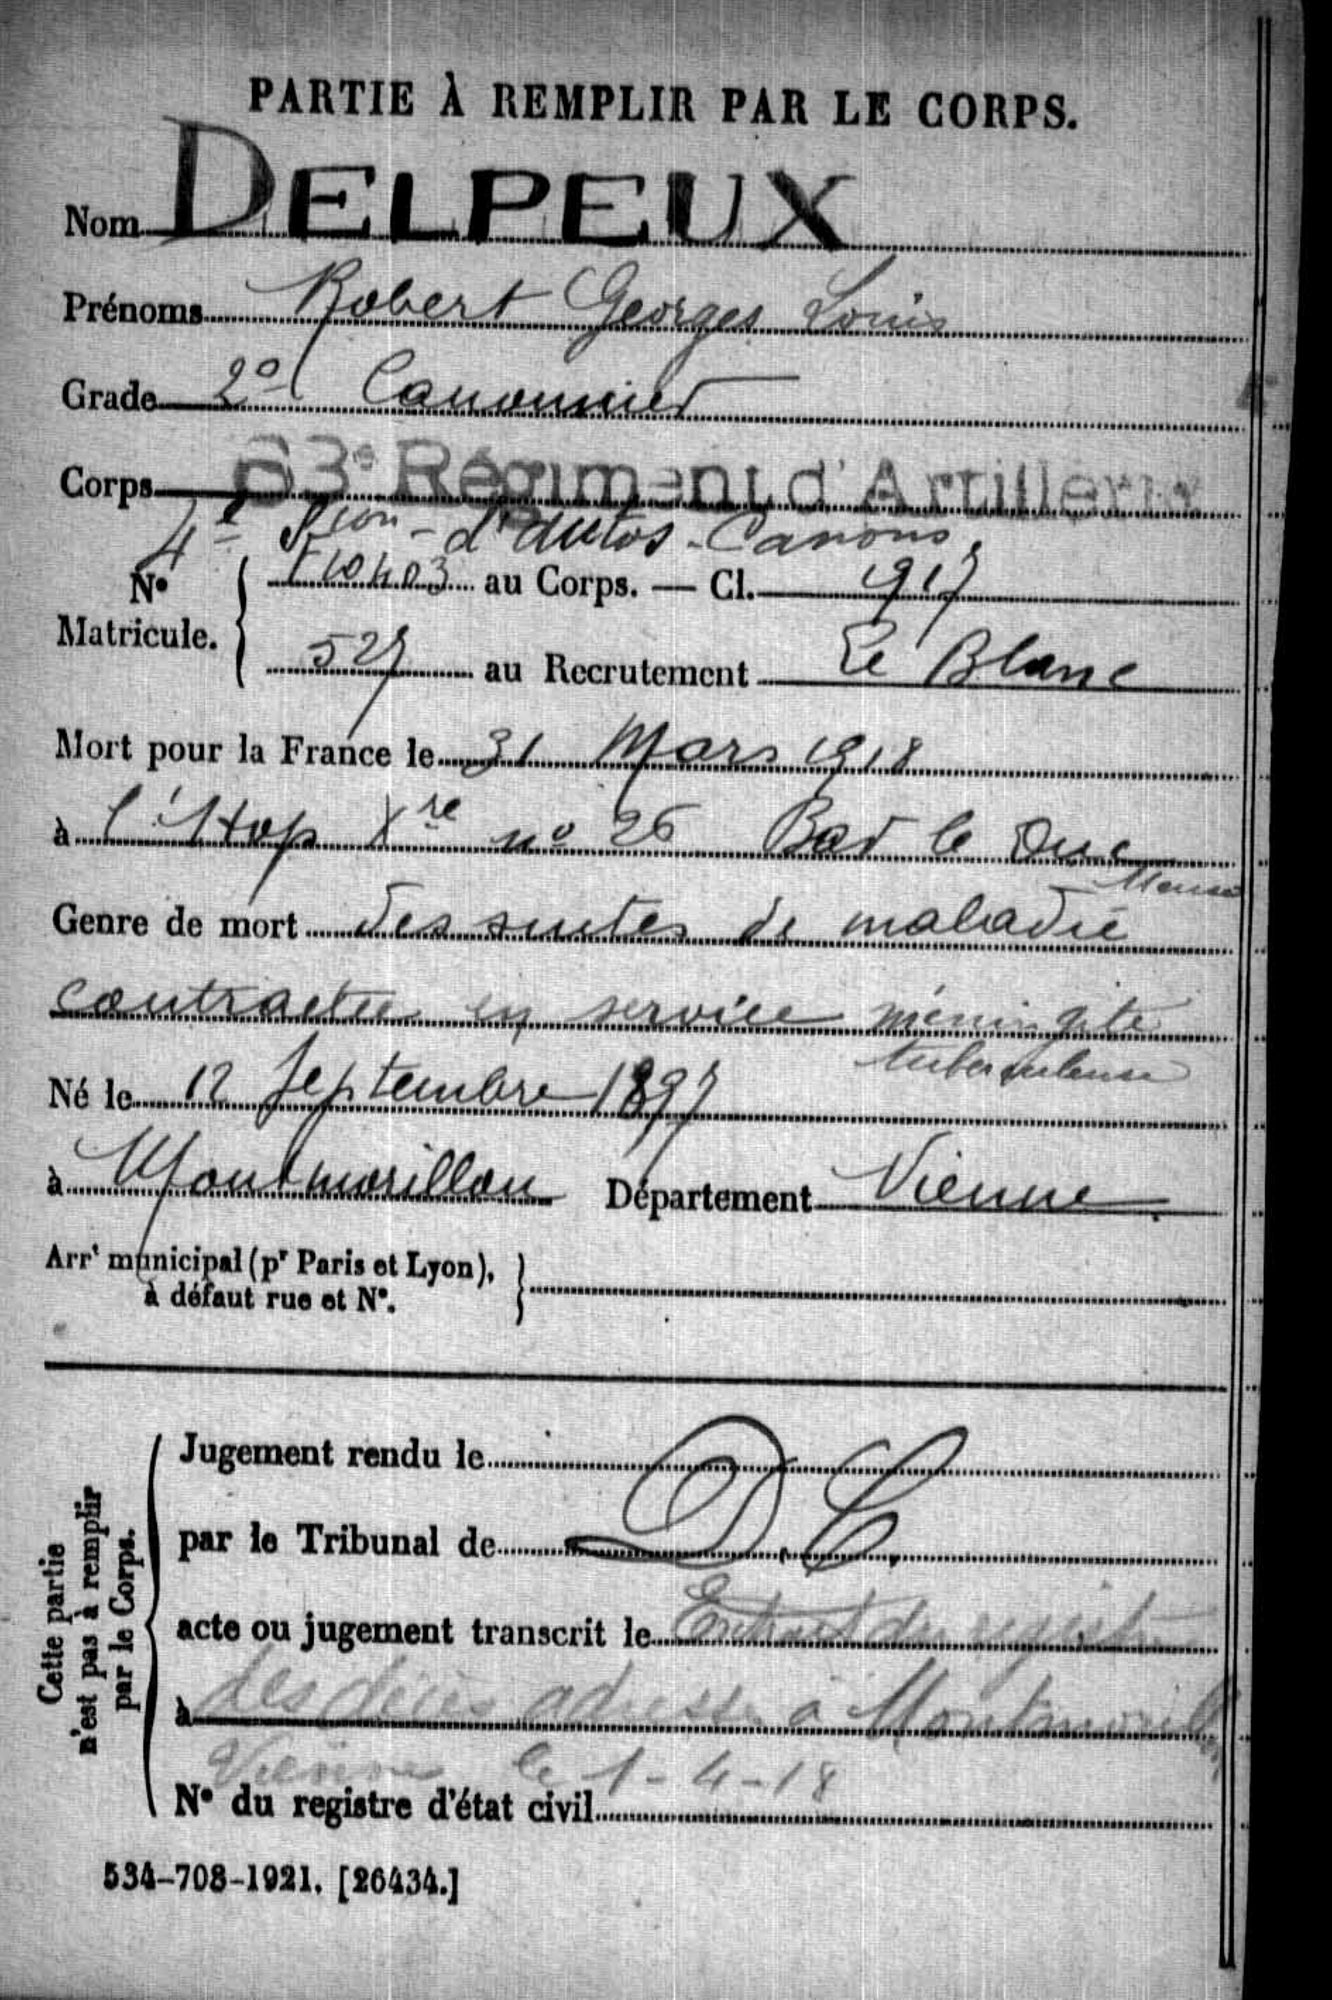 PARTIE À REMPLIR PAR LE CORPS.
Nom DELPEUX
Prénoms Robert Georges Louis
Grade 2e Canonnier
Corps 63e Régiment d'Artillerie
4e Son d'autos-Canons
No Matricule. { 10403 au Corps. — Cl. 1917
527 au Recrutement Le Blanc
Mort pour la France le 31 Mars 1918
à l'Hop Xre no 26 Bar le Duc
Meuse
Genre de mort des suites de maladie
contractée en service méningite
tuberculeuse
Né le 12 Septembre 1897
à Montmorillon Département Vienne.
Arrt municipal (pr Paris et Lyon),
à défaut rue et No.
Cette partie
n'est pas à remplir
par le Corps.
Jugement rendu le
par le Tribunal de D.C.
acte ou jugement transcrit le Extrait du registre
à des décès adressé à Montmorillon
Vienne le 1-4-18
No du registre d'état civil
534-708-1921. [26434.]